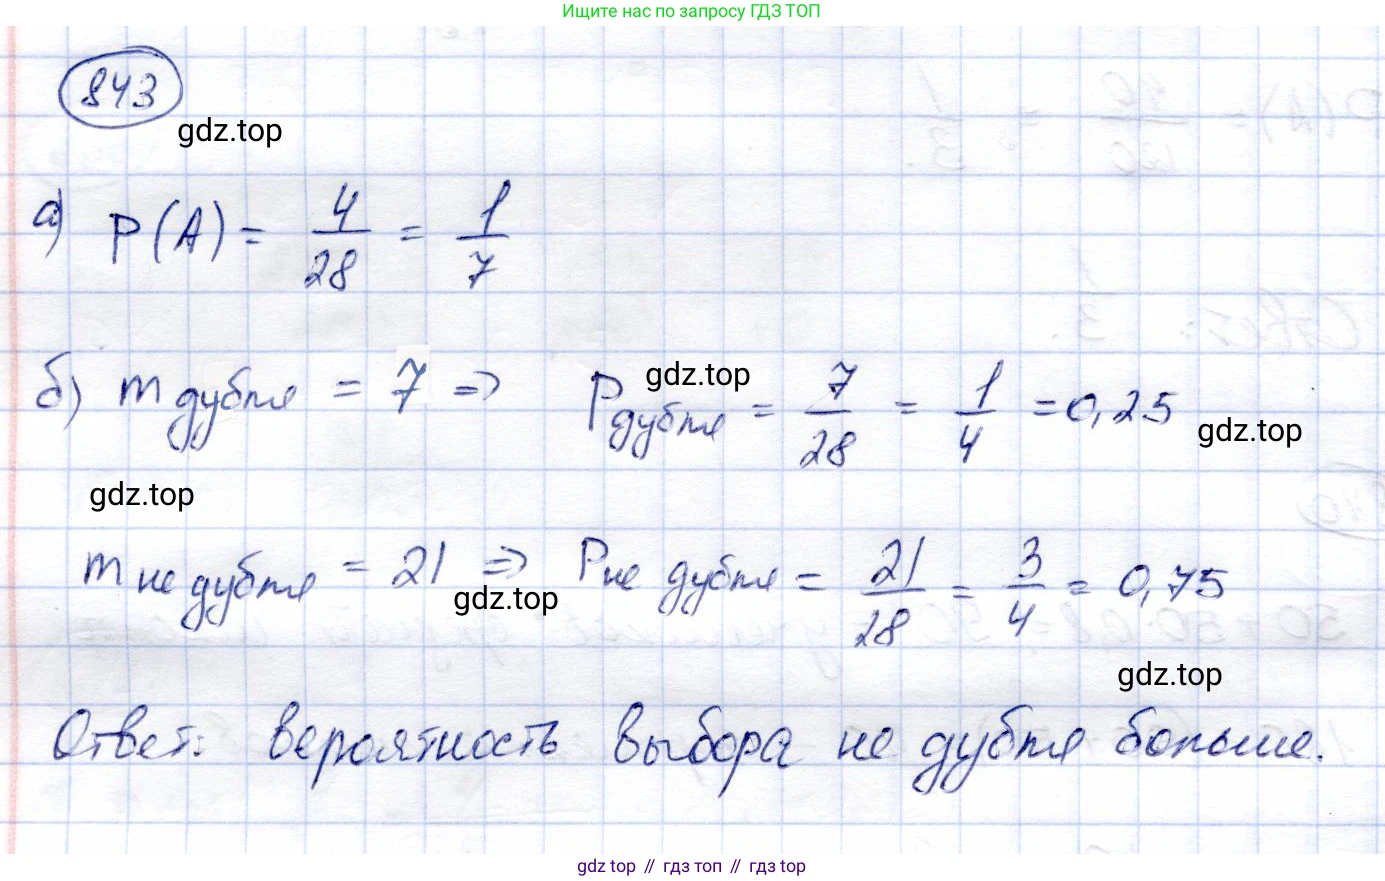 Ищите нас по запросу ГДЗ ТОП
843
gdz.top
а) P(A) = 4/28 = 1/7
б) m дубля = 7 => P дубля = 7/28 = 1/4 = 0,25
gdz.top
gdz.top
gdz.top
m не дубля = 21 => P не дубля = 21/28 = 3/4 = 0,75
gdz.top
gdz.top
Ответ: вероятность выбора не дубля больше.
gdz top // гдз топ // gdz top